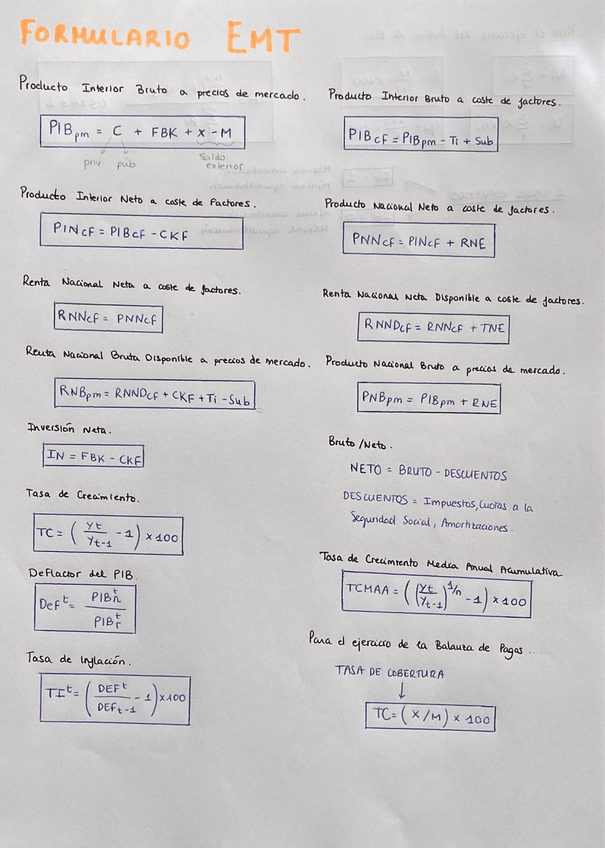 FORMULARIO EMT
Producto Interior Bruto a precios de mercado.
PIBpm = C + FBK + X - M
priv púb
Saldo
exterior
Producto Interior Bruto a coste de factores.
PIBCF = PIBpm - Ti + Sub
Producto Interior Neto a coste de Factores.
PINCF = PIBCF - CKF
Producto Nacional Neto a coste de factores.
PNNCF = PINCF + RNE
Renta Nacional Neta a coste de factores.
RNNCF = PNNCF
Renta Nacional Neta Disponible a coste de factores.
RNNDCF = RNNCF + TNE
Renta Nacional Bruta Disponible a precios de mercado.
RNBpm = RNNDCF + CKF + Ti - Sub
Producto Nacional Bruto a precios de mercado.
PNBpm = PIBpm + RNE
Inversión Neta.
IN = FBK - CKF
Bruto / Neto.
NETO = BRUTO - DESCUENTOS
DESCUENTOS = Impuestos, Cuotas a la
Seguridad Social, Amortizaciones.
Tasa de Crecimiento.
TC = ( Yt / Yt-1 - 1 ) x 100
Tasa de Crecimiento Media Anual Acumulativa
TCMAA = ( (Yt / Yt-1)^1/n - 1 ) x 100
Deflactor del PIB.
Def^t = PIB^t n / PIB^t r
Para el ejercicio de la Balanza de Pagos...
TASA DE COBERTURA
↓
TC = ( X / M ) x 100
Tasa de Inflación.
TI^t = ( DEF^t / DEFt-1 - 1 ) x 100